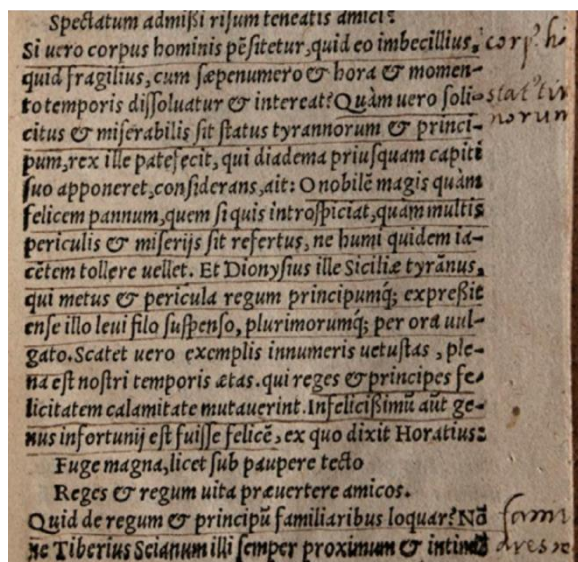 Spectatum admißi riſum teneatis amici?
Si uero corpus hominis pēſitetur, quid eo imbecillius,
quid fragilius, cum ſæpenumero & hora & momen-
to temporis diſſoluatur & intereat? Quàm uero ſoli-
citus & miſerabilis ſit ſtatus tyrannorum & princi-
pum, rex ille patefecit, qui diadema priuſquam capiti
ſuo apponeret, conſiderans, ait: O nobilē magis quàm
felicem pannum, quem ſi quis introſpiciat, quàm multis
periculis & miſerijs ſit refertus, ne humi quidem ia-
cētem tollere uellet. Et Dionyſius ille Siciliæ tyrānus,
qui metus & pericula regum principumq; expreßit
enſe illo leui filo ſuſpenſo, plurimorumq; per ora uul-
gato. Scatet uero exemplis innumeris uetuſtas, ple-
na eſt noſtri temporis ætas. qui reges & principes fe-
licitatem calamitate mutauerint. Infelicißimū aūt ge-
nus infortunij eſt fuiſſe felicē, ex quo dixit Horatius:
Fuge magna, licet ſub paupere tecto
Reges & regum uita præuertere amicos.
Quid de regum & principū familiaribus loquar? Nā
ne Tiberius Seianum illi ſemper proximum & intimū
corpꝰ hi
statꝰ tir
norum
fami
ares